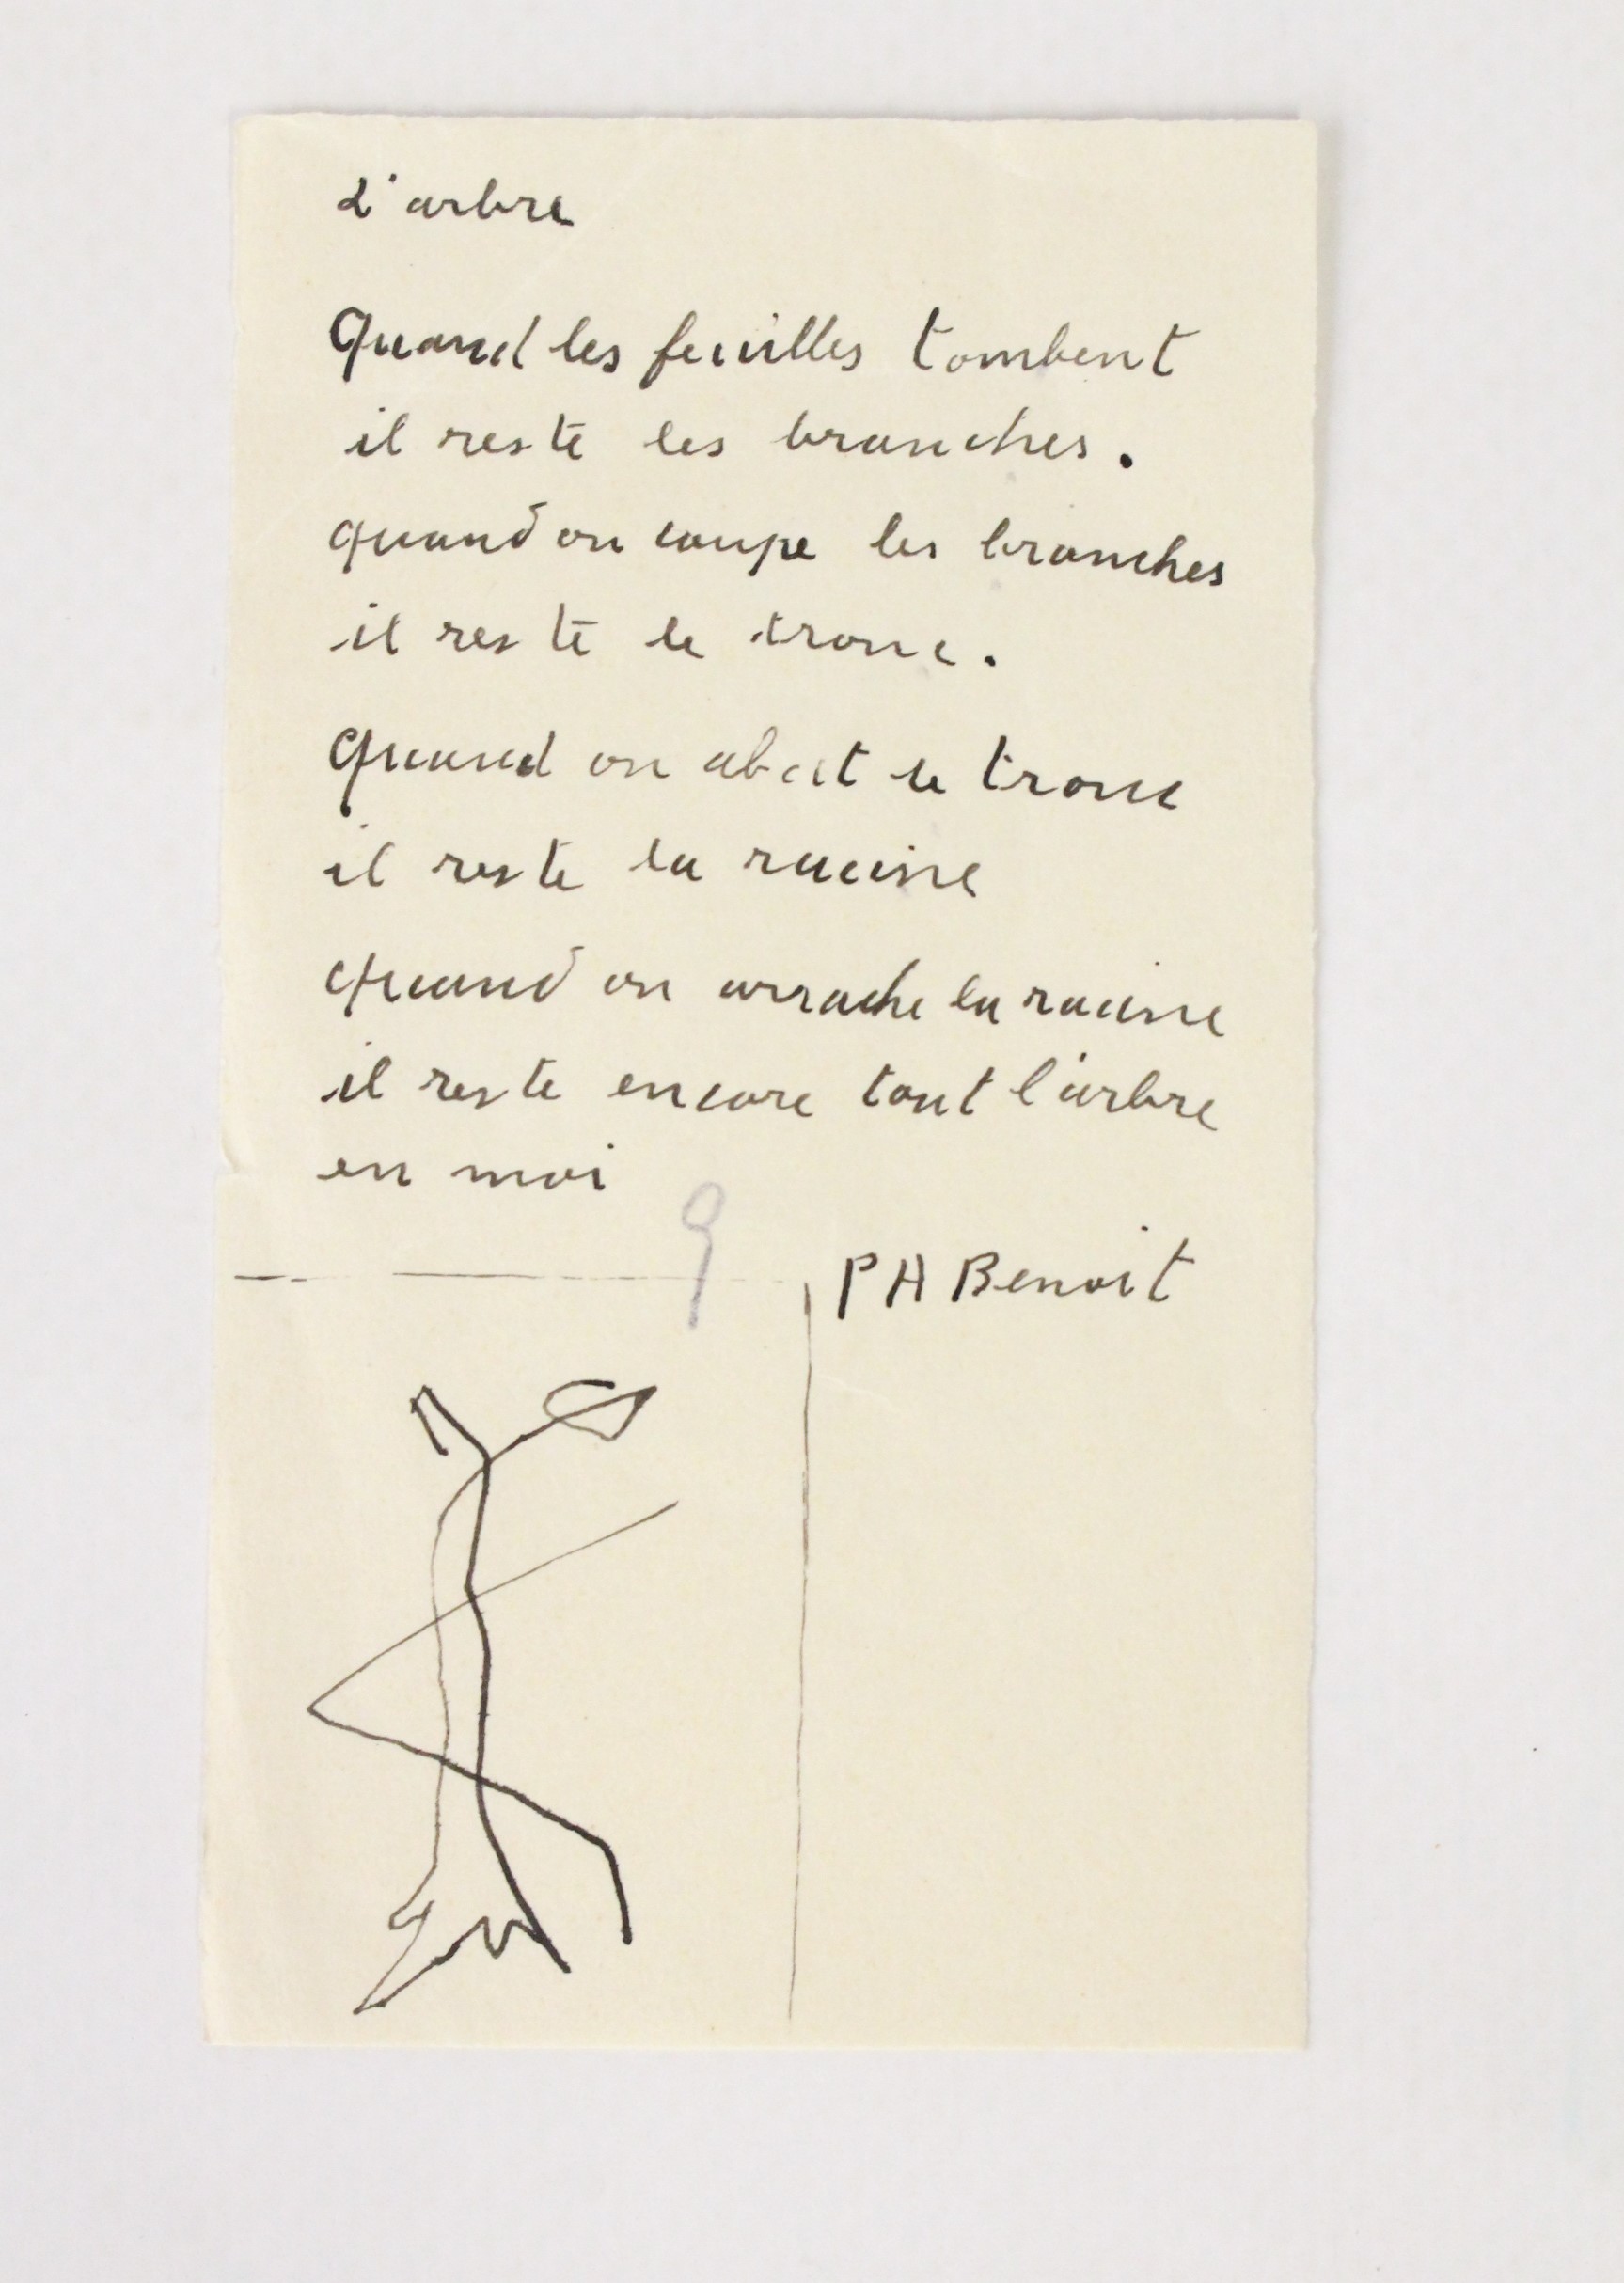 L'arbre
Quand les feuilles tombent
il reste les branches.
quand on coupe les branches
il reste le tronc.
Quand on abat le tronc
il reste la racine
quand on arrache la racine
il reste encore tout l'arbre
en moi
9
PA Benoit